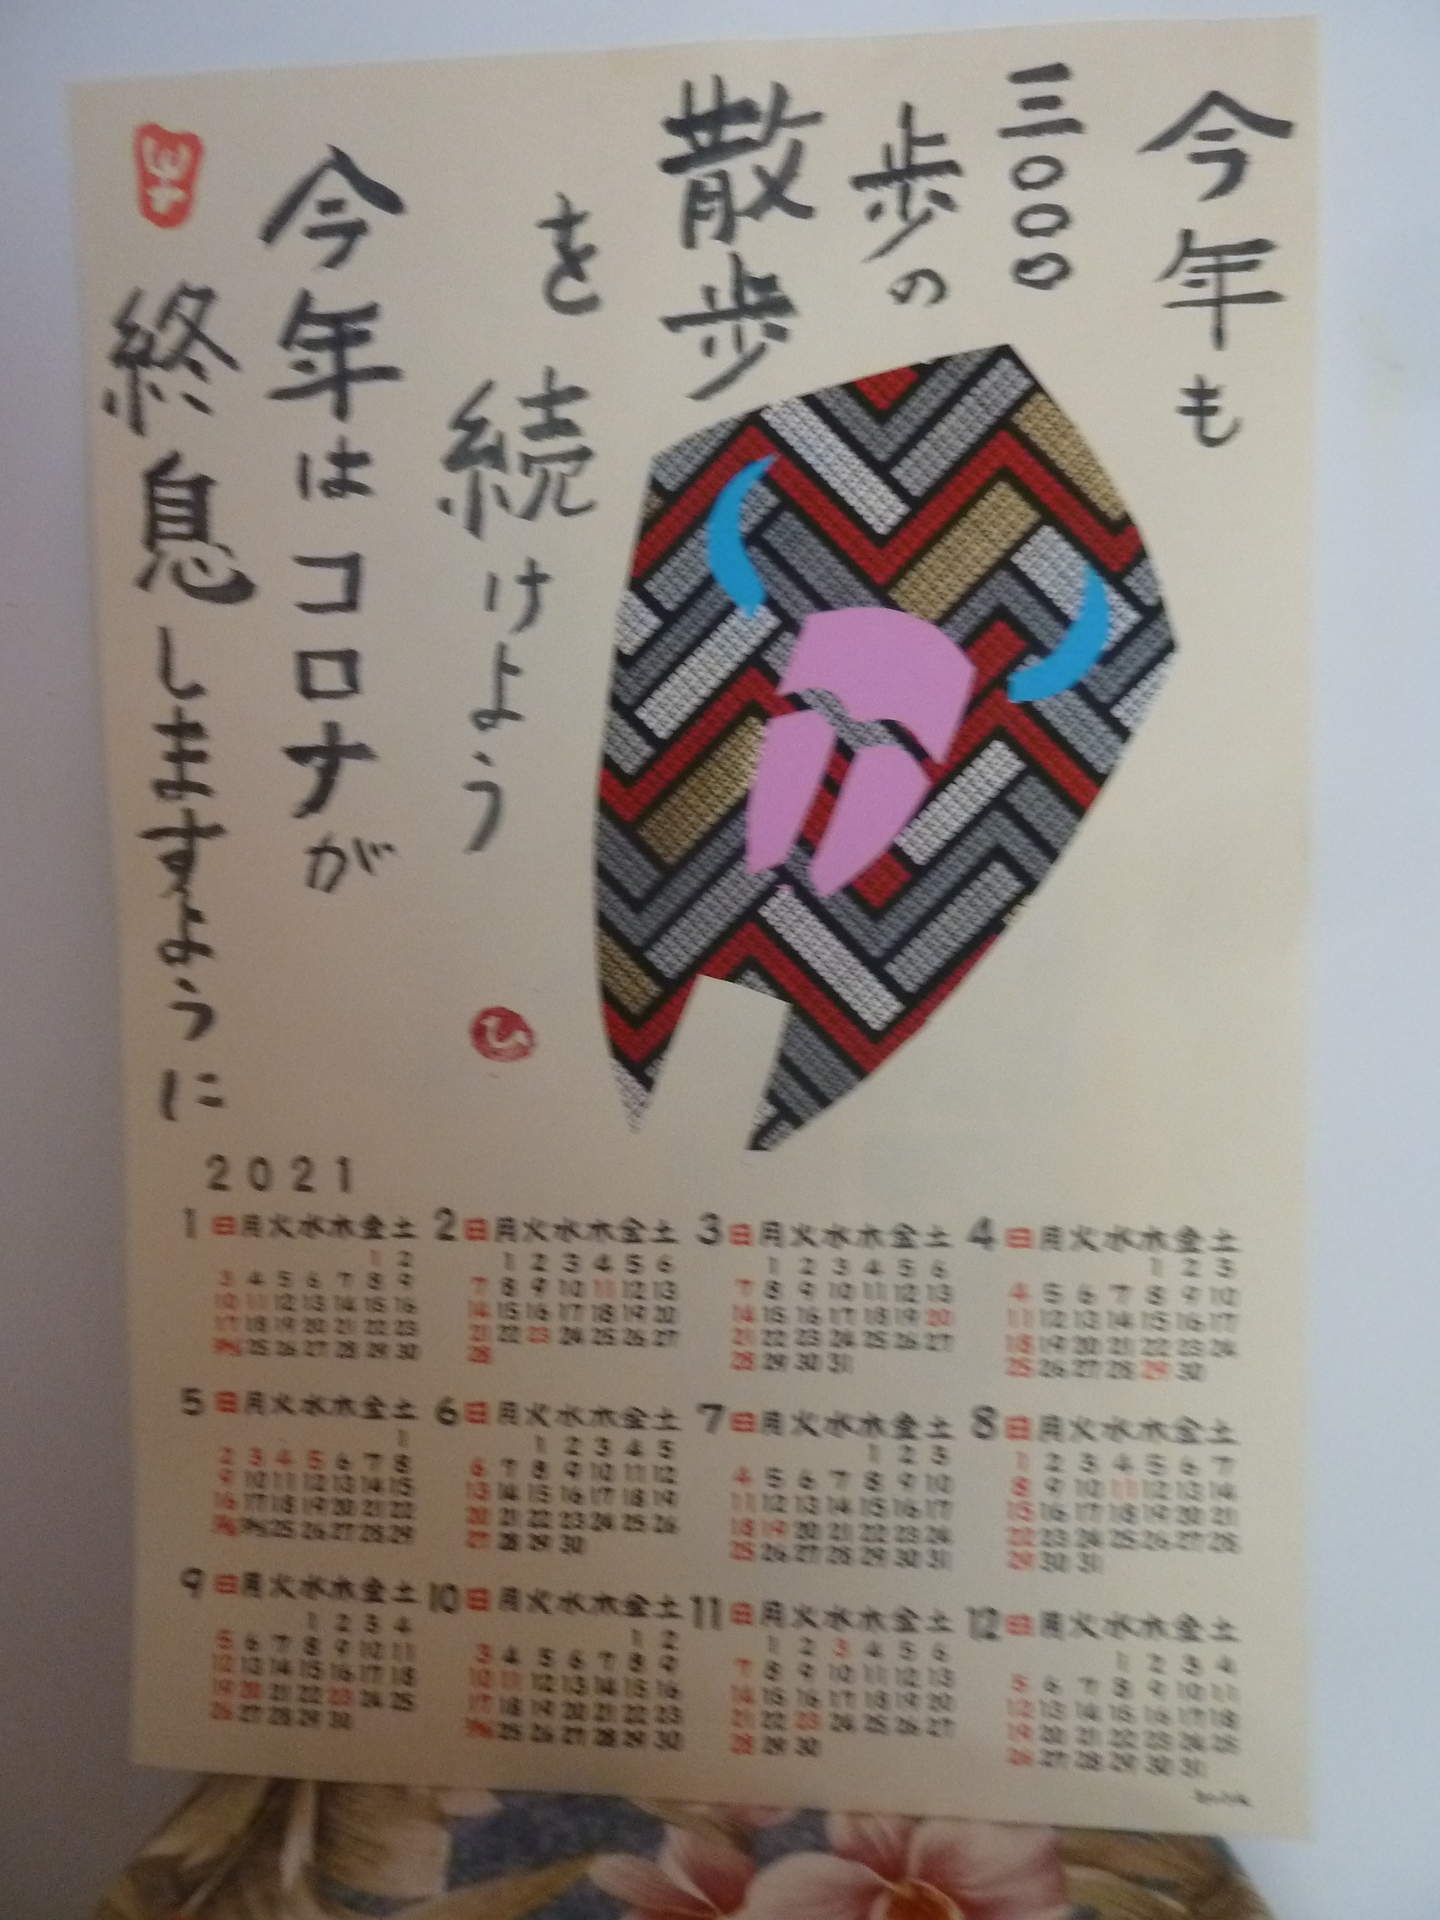 今年も
三〇〇〇
歩の
散歩
を
続けよう
今年はコロナが
終息しますように
ひ
2021
1 日 月 火 水 木 金 土
1 2
3 4 5 6 7 8 9
10 11 12 13 14 15 16
17 18 19 20 21 22 23
24/31 25 26 27 28 29 30
2 日 月 火 水 木 金 土
1 2 3 4 5 6
7 8 9 10 11 12 13
14 15 16 17 18 19 20
21 22 23 24 25 26 27
28
3 日 月 火 水 木 金 土
1 2 3 4 5 6
7 8 9 10 11 12 13
14 15 16 17 18 19 20
21 22 23 24 25 26 27
28 29 30 31
4 日 月 火 水 木 金 土
1 2 3
4 5 6 7 8 9 10
11 12 13 14 15 16 17
18 19 20 21 22 23 24
25 26 27 28 29 30
5 日 月 火 水 木 金 土
1
2 3 4 5 6 7 8
9 10 11 12 13 14 15
16 17 18 19 20 21 22
23/30 24/31 25 26 27 28 29
6 日 月 火 水 木 金 土
1 2 3 4 5
6 7 8 9 10 11 12
13 14 15 16 17 18 19
20 21 22 23 24 25 26
27 28 29 30
7 日 月 火 水 木 金 土
1 2 3
4 5 6 7 8 9 10
11 12 13 14 15 16 17
18 19 20 21 22 23 24
25 26 27 28 29 30 31
8 日 月 火 水 木 金 土
1 2 3 4 5 6 7
8 9 10 11 12 13 14
15 16 17 18 19 20 21
22 23 24 25 26 27 28
29 30 31
9 日 月 火 水 木 金 土
1 2 3 4
5 6 7 8 9 10 11
12 13 14 15 16 17 18
19 20 21 22 23 24 25
26 27 28 29 30
10 日 月 火 水 木 金 土
1 2
3 4 5 6 7 8 9
10 11 12 13 14 15 16
17 18 19 20 21 22 23
24/31 25 26 27 28 29 30
11 日 月 火 水 木 金 土
1 2 3 4 5 6
7 8 9 10 11 12 13
14 15 16 17 18 19 20
21 22 23 24 25 26 27
28 29 30
12 日 月 火 水 木 金 土
1 2 3 4
5 6 7 8 9 10 11
12 13 14 15 16 17 18
19 20 21 22 23 24 25
26 27 28 29 30 31